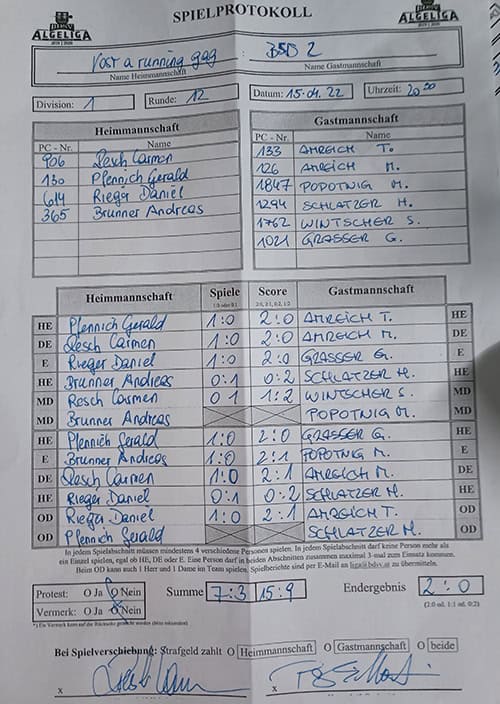 BDSV ALGELIGA 2019 | 2020 SPIELPROTOKOLL BDSV ALGELIGA 2019 | 2020
Vost a running gag : BSD 2
Name Heimmannschaft Name Gastmannschaft
Division: 1 Runde: 12 Datum: 15.04.22 Uhrzeit: 20 00
Heimmannschaft Gastmannschaft
PC - Nr. Name PC - Nr. Name
906 Resch Carmen 133 AMREICH T.
130 Pfennich Gerald 126 AMREICH M.
614 Rieger Daniel 1847 POPOTNIG M.
365 Brunner Andreas 1294 SCHLATZER H.
1762 WINTSCHER S.
1021 GRASSER G.
Heimmannschaft Spiele Score Gastmannschaft
1:0 oder 0:1 2:0, 2:1, 0:2, 1:2
HE Pfennich Gerald 1:0 2:0 AMREICH T. HE
DE Resch Carmen 1:0 2:0 AMREICH M. DE
E Rieger Daniel 1:0 2:0 GRASSER G. E
HE Brunner Andreas 0:1 0:2 SCHLATZER H. HE
MD Resch Carmen 0 1 1:2 WINTSCHER S. MD
MD Brunner Andreas POPOTNIG M. MD
HE Pfennich Gerald 1:0 2:0 GRASSER G. HE
E Brunner Andreas 1:0 2:1 POPOTNIG M. E
DE Resch Carmen 1:0 2:1 AMREICH M. DE
HE Rieger Daniel 0:1 0:2 SCHLATZER H. HE
OD Rieger Daniel 1:0 2:1 AMREICH T. OD
OD Pfennich Gerald SCHLATZER H. OD
In jedem Spielabschnitt müssen mindestens 4 verschiedene Personen spielen. In jedem Spielabschnitt darf keine Person mehr als
ein Einzel spielen, egal ob HE, DE oder E. Eine Person darf in beiden Abschnitten zusammen maximal 3-mal zum Einsatz kommen.
Beim OD kann auch 1 Herr und 1 Dame im Team spielen. Spielberichte sind per E-Mail an liga@bdsv.at zu übermitteln.
Protest: O Ja O Nein Summe 7:3 15:9 Endergebnis 2:0
Vermerk: O Ja O Nein (2:0 od. 1:1 od. 0:2)
*) Ein Vermerk kann auf der Rückseite gemacht werden (bitte ankreuzen)
Bei Spielverschiebung: Strafgeld zahlt O Heimmannschaft O Gastmannschaft O beide
x x